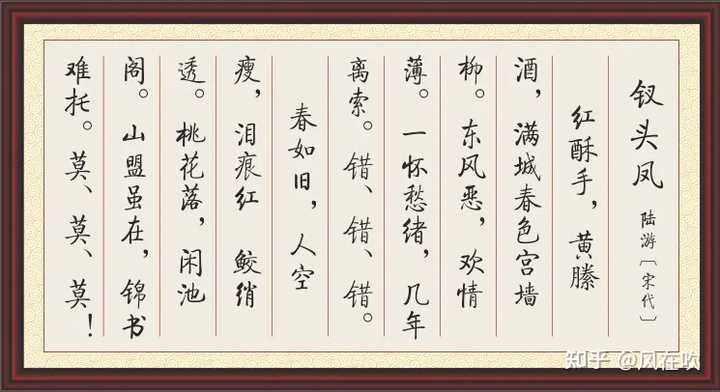 钗头凤 陆游〔宋代〕
红酥手，黄滕
酒，满城春色宫墙
柳。东风恶，欢情
薄。一怀愁绪，几年
离索。错、错、错。
春如旧，人空
瘦，泪痕红 鲛绡
透。桃花落，闲池
阁。山盟虽在，锦书
难托。莫、莫、莫！
知乎 @风在吹